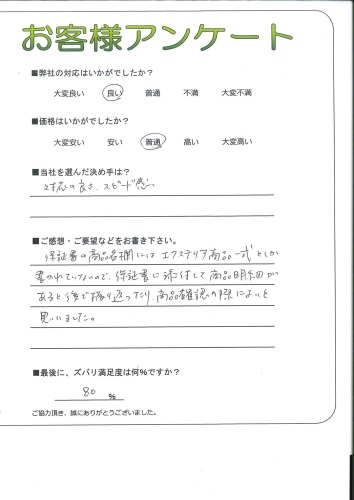 お客様アンケート
■弊社の対応はいかがでしたか？
大変良い 良い 普通 不満 大変不満
■価格はいかがでしたか？
大変安い 安い 普通 高い 大変高い
■当社を選んだ決め手は？
対応の良さ、スピード感
■ご感想・ご要望などをお書き下さい。
保証書の商品名欄には エクステリア商品一式としか
書かれていないので、保証書に添付して商品明細が
あると後で振り返ったり、商品確認の際によいと
思いました。
■最後に、ズバリ満足度は何％ですか？
80 ％
ご協力頂き、誠にありがとうございました。